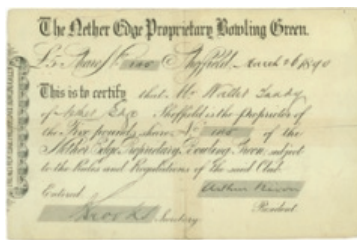 The Nether Edge Proprietary Bowling Green.
£5 Share Sheffield March 26 1890
This is to certify that Mr Walter
of Nether Edge Sheffield is the proprietor of
the Five pounds share No of the
Nether Edge Proprietary Bowling Green, subject
to the Rules and Regulations of the said Club.
Entered Arthur
Brooks Secretary President